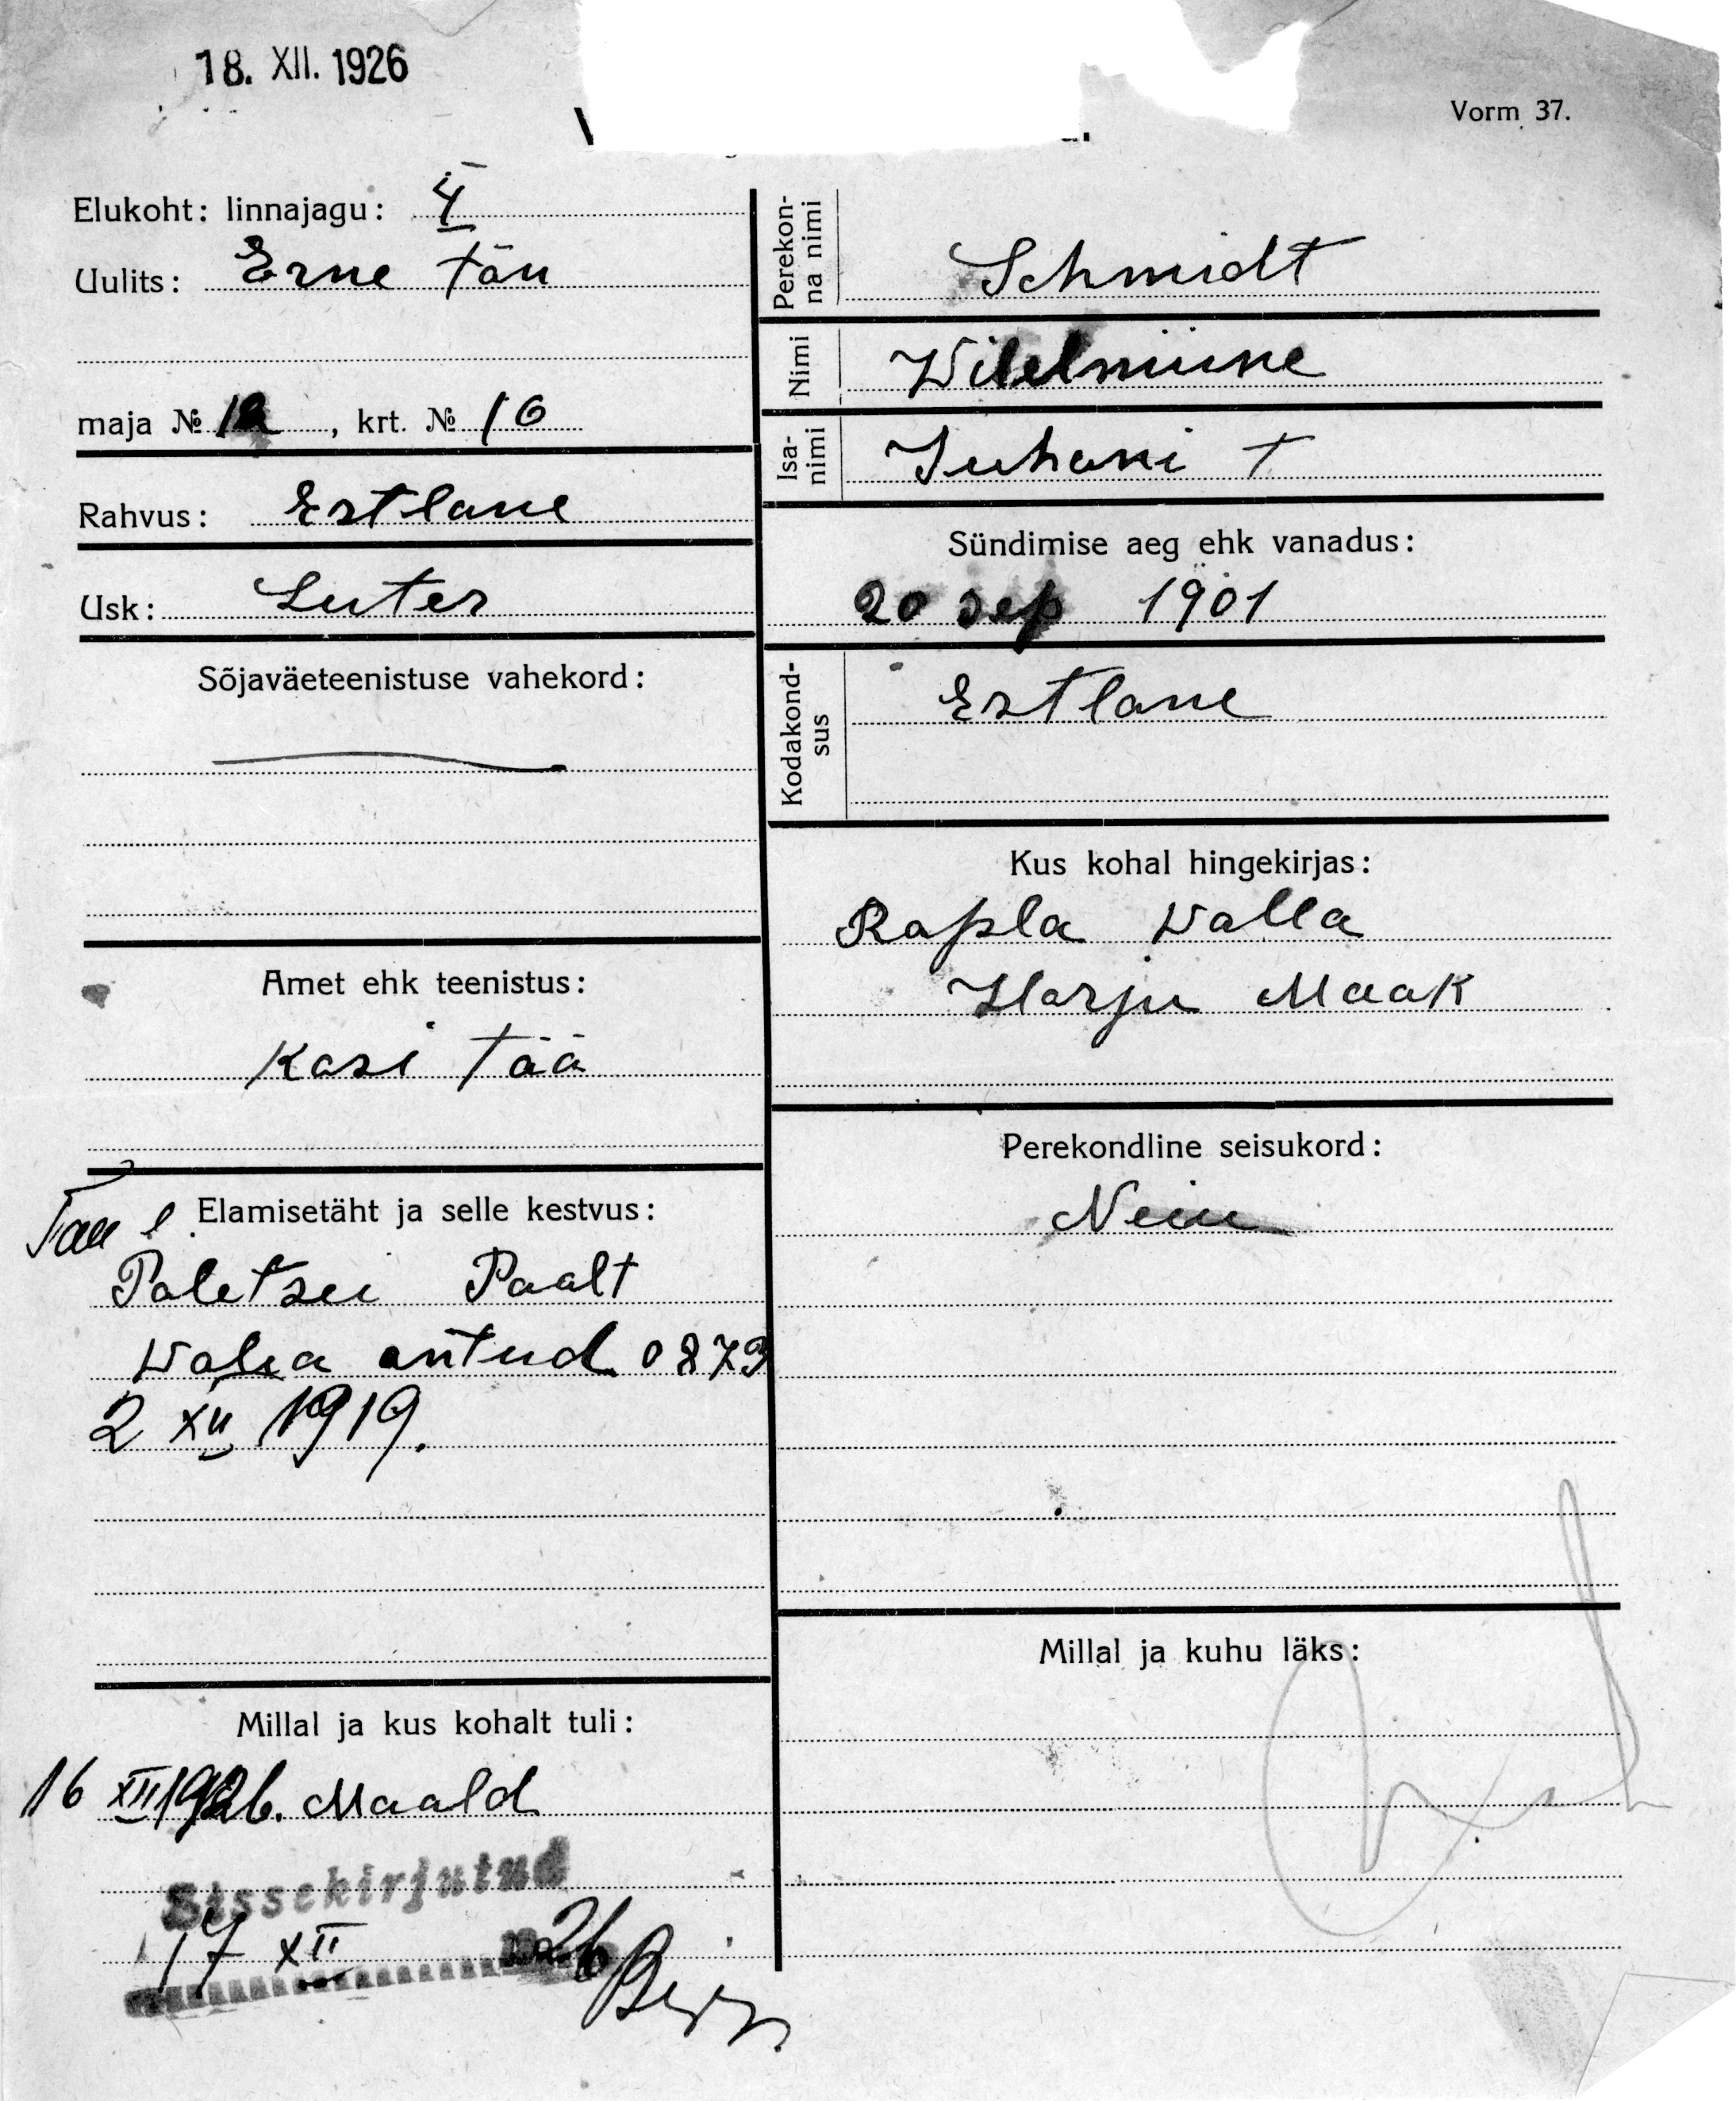 18. XII. 1926
Vorm 37.
Elukoht: linnajagu:
Uulits: Erne tän
maja № 12, krt. № 10
Rahvus: Estlane
Usk: Luter
Sõjaväeteenistuse vahekord:
Amet ehk teenistus:
Kasi tää
Elamisetäht ja selle kestvus:
Poletsei Paalt
walea antud 0873
2 XII 1919.
Millal ja kus kohalt tuli:
16 XII 1926. Maald
Sissekirjutud
17 XII 26
Perekon-
na nimi
Schmidt
Nimi
Wilelmiine
Isa-
nimi
Juhani †
Sündimise aeg ehk vanadus:
20 sep 1901
Kodakond-
sus
Estlane
Kus kohal hingekirjas:
Rapla walla
Harju Maak
Perekondline seisukord:
Neiu
Millal ja kuhu läks: